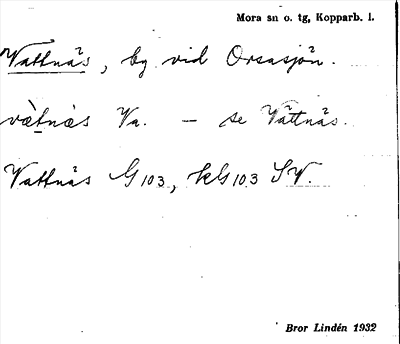 Mora sn o. tg, Kopparb. l.
Vattnäs, by vid Orsasjön.
vætnæs Va. – se Vättnäs.
Vattnäs G103, kG103 SV.
Bror Lindén 1932